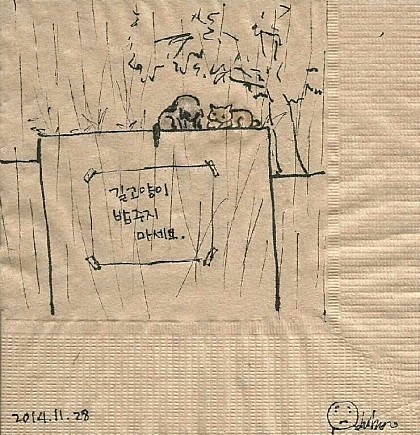 길고양이
밥주지
마세요.
2014.11.28